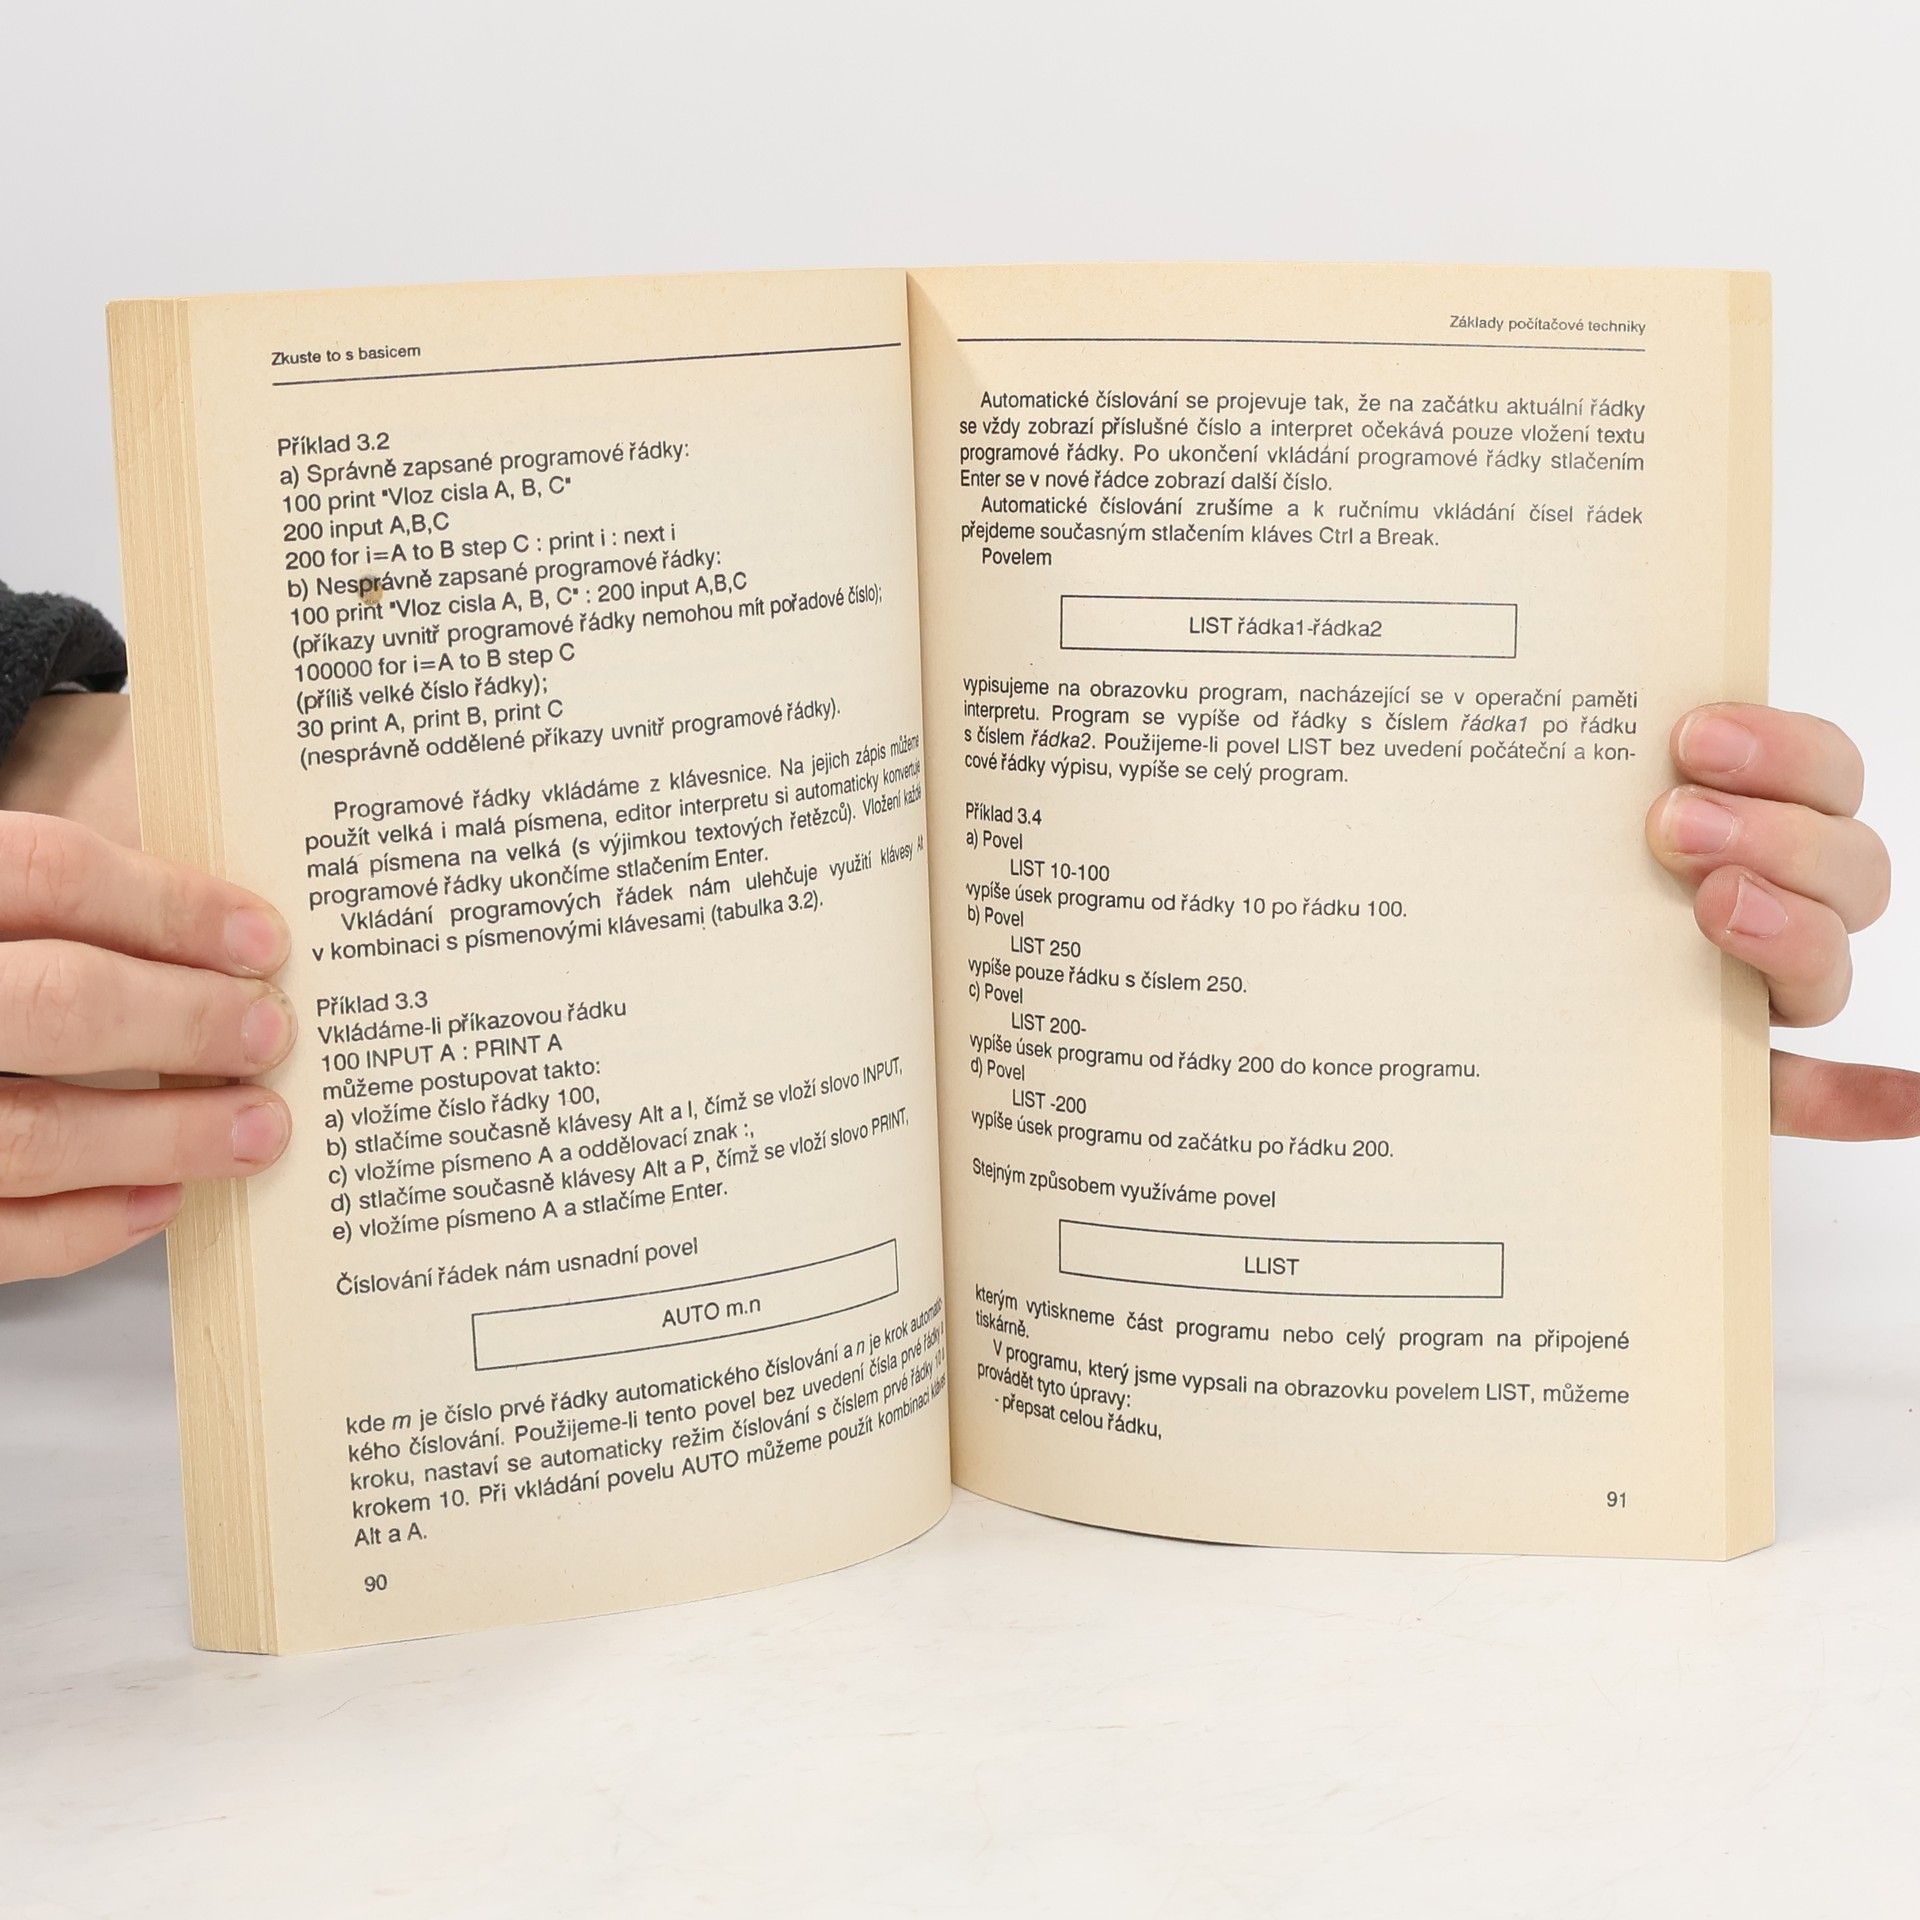 Zkuste to s basicem
Příklad 3.2
a) Správně zapsané programové řádky:
100 print "Vloz cisla A, B, C"
200 input A,B,C
200 for i=A to B step C : print i : next i
b) Nesprávně zapsané programové řádky:
100 print "Vloz cisla A, B, C" : 200 input A,B,C
(příkazy uvnitř programové řádky nemohou mít pořadové číslo);
100000 for i=A to B step C
(příliš velké číslo řádky);
30 print A, print B, print C
(nesprávně oddělené příkazy uvnitř programové řádky).
Programové řádky vkládáme z klávesnice. Na jejich zápis můžeme
použít velká i malá písmena, editor interpretu si automaticky konvertuje
malá písmena na velká (s výjimkou textových řetězců). Vložení každé
programové řádky ukončíme stlačením Enter.
Vkládání programových řádek nám ulehčuje využití klávesy Alt
v kombinaci s písmenovými klávesami (tabulka 3.2).
Příklad 3.3
Vkládáme-li příkazovou řádku
100 INPUT A : PRINT A
můžeme postupovat takto:
a) vložíme číslo řádky 100,
b) stlačíme současně klávesy Alt a I, čímž se vloží slovo INPUT,
c) vložíme písmeno A a oddělovací znak :,
d) stlačíme současně klávesy Alt a P, čímž se vloží slovo PRINT,
e) vložíme písmeno A a stlačíme Enter.
Číslování řádek nám usnadní povel
AUTO m.n
kde m je číslo prvé řádky automatického číslování a n je krok automatic-
kého číslování. Použijeme-li tento povel bez uvedení čísla prvé řádky a
kroku, nastaví se automaticky režim číslování s číslem prvé řádky 10 a
krokem 10. Při vkládání povelu AUTO můžeme použít kombinaci kláves
Alt a A.
90
Základy počítačové techniky
Automatické číslování se projevuje tak, že na začátku aktuální řádky
se vždy zobrazí příslušné číslo a interpret očekává pouze vložení textu
programové řádky. Po ukončení vkládání programové řádky stlačením
Enter se v nové řádce zobrazí další číslo.
Automatické číslování zrušíme a k ručnímu vkládání čísel řádek
přejdeme současným stlačením kláves Ctrl a Break.
Povelem
LIST řádka1-řádka2
vypisujeme na obrazovku program, nacházející se v operační paměti
interpretu. Program se vypíše od řádky s číslem řádka1 po řádku
s číslem řádka2. Použijeme-li povel LIST bez uvedení počáteční a kon-
cové řádky výpisu, vypíše se celý program.
Příklad 3.4
a) Povel
LIST 10-100
vypíše úsek programu od řádky 10 po řádku 100.
b) Povel
LIST 250
vypíše pouze řádku s číslem 250.
c) Povel
LIST 200-
vypíše úsek programu od řádky 200 do konce programu.
d) Povel
LIST -200
vypíše úsek programu od začátku po řádku 200.
Stejným způsobem využíváme povel
LLIST
kterým vytiskneme část programu nebo celý program na připojené
tiskárně.
V programu, který jsme vypsali na obrazovku povelem LIST, můžeme
provádět tyto úpravy:
- přepsat celou řádku,
91